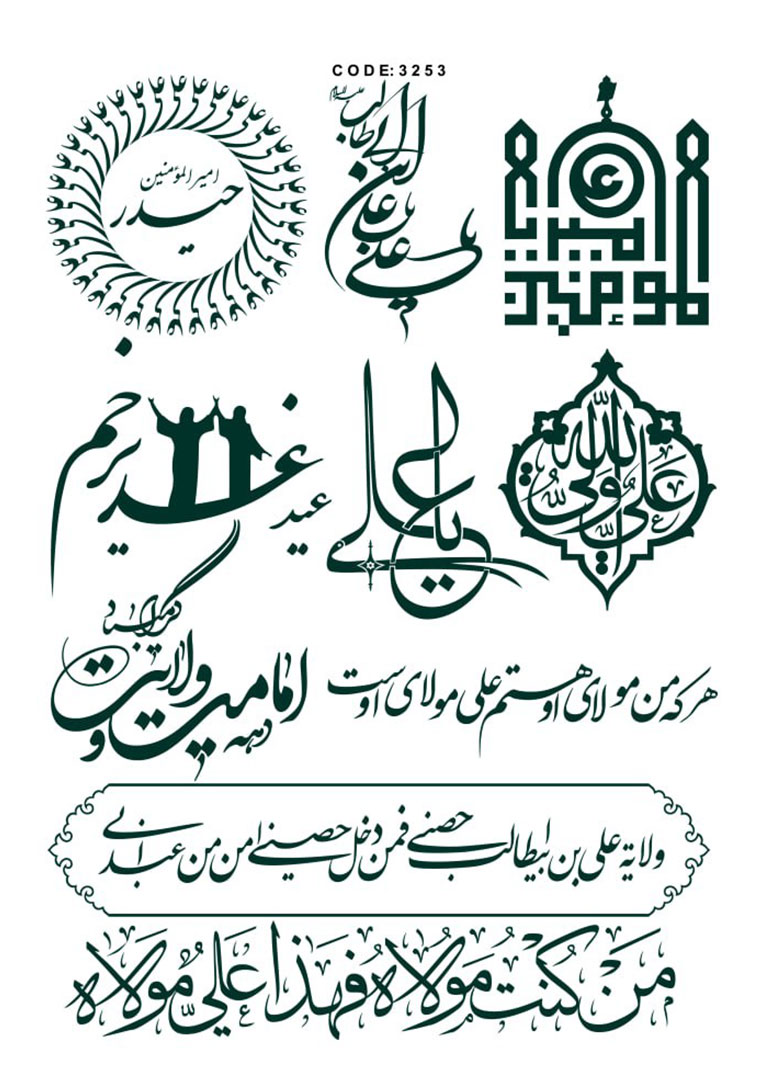 CODE:3253
امیرالمؤمنین
حیدر
علیه السلام
یا علی بن ابی طالب
امیر المومنین
عید غدیر خم
یا علی
علی ولی الله
دهه امامت و ولایت
هر که من مولای او هستم علی مولای اوست
ولایة علی بن ابیطالب حصنی فمن دخل حصنی امن من عذابی
مَن کُنتُ مَولاهُ فَهذا عَلیٌّ مَولاه